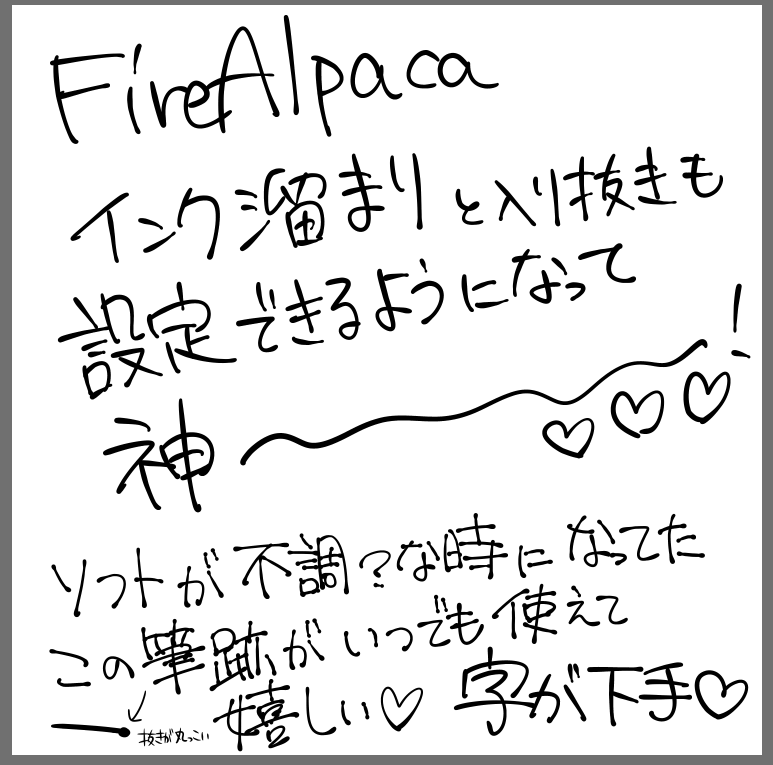 FireAlpaca
インク溜まりと入り抜きも
設定できるようになって
神〜!♡♡♡
ソフトが不調?な時になってた
この筆跡がいつでも使えて
嬉しい♡ 字が下手♡
抜きが丸っこい